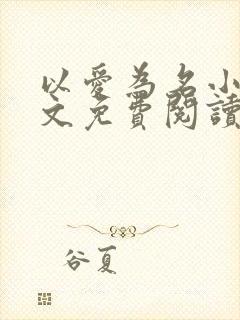 以愛為名小
文免費閱讀
谷夏